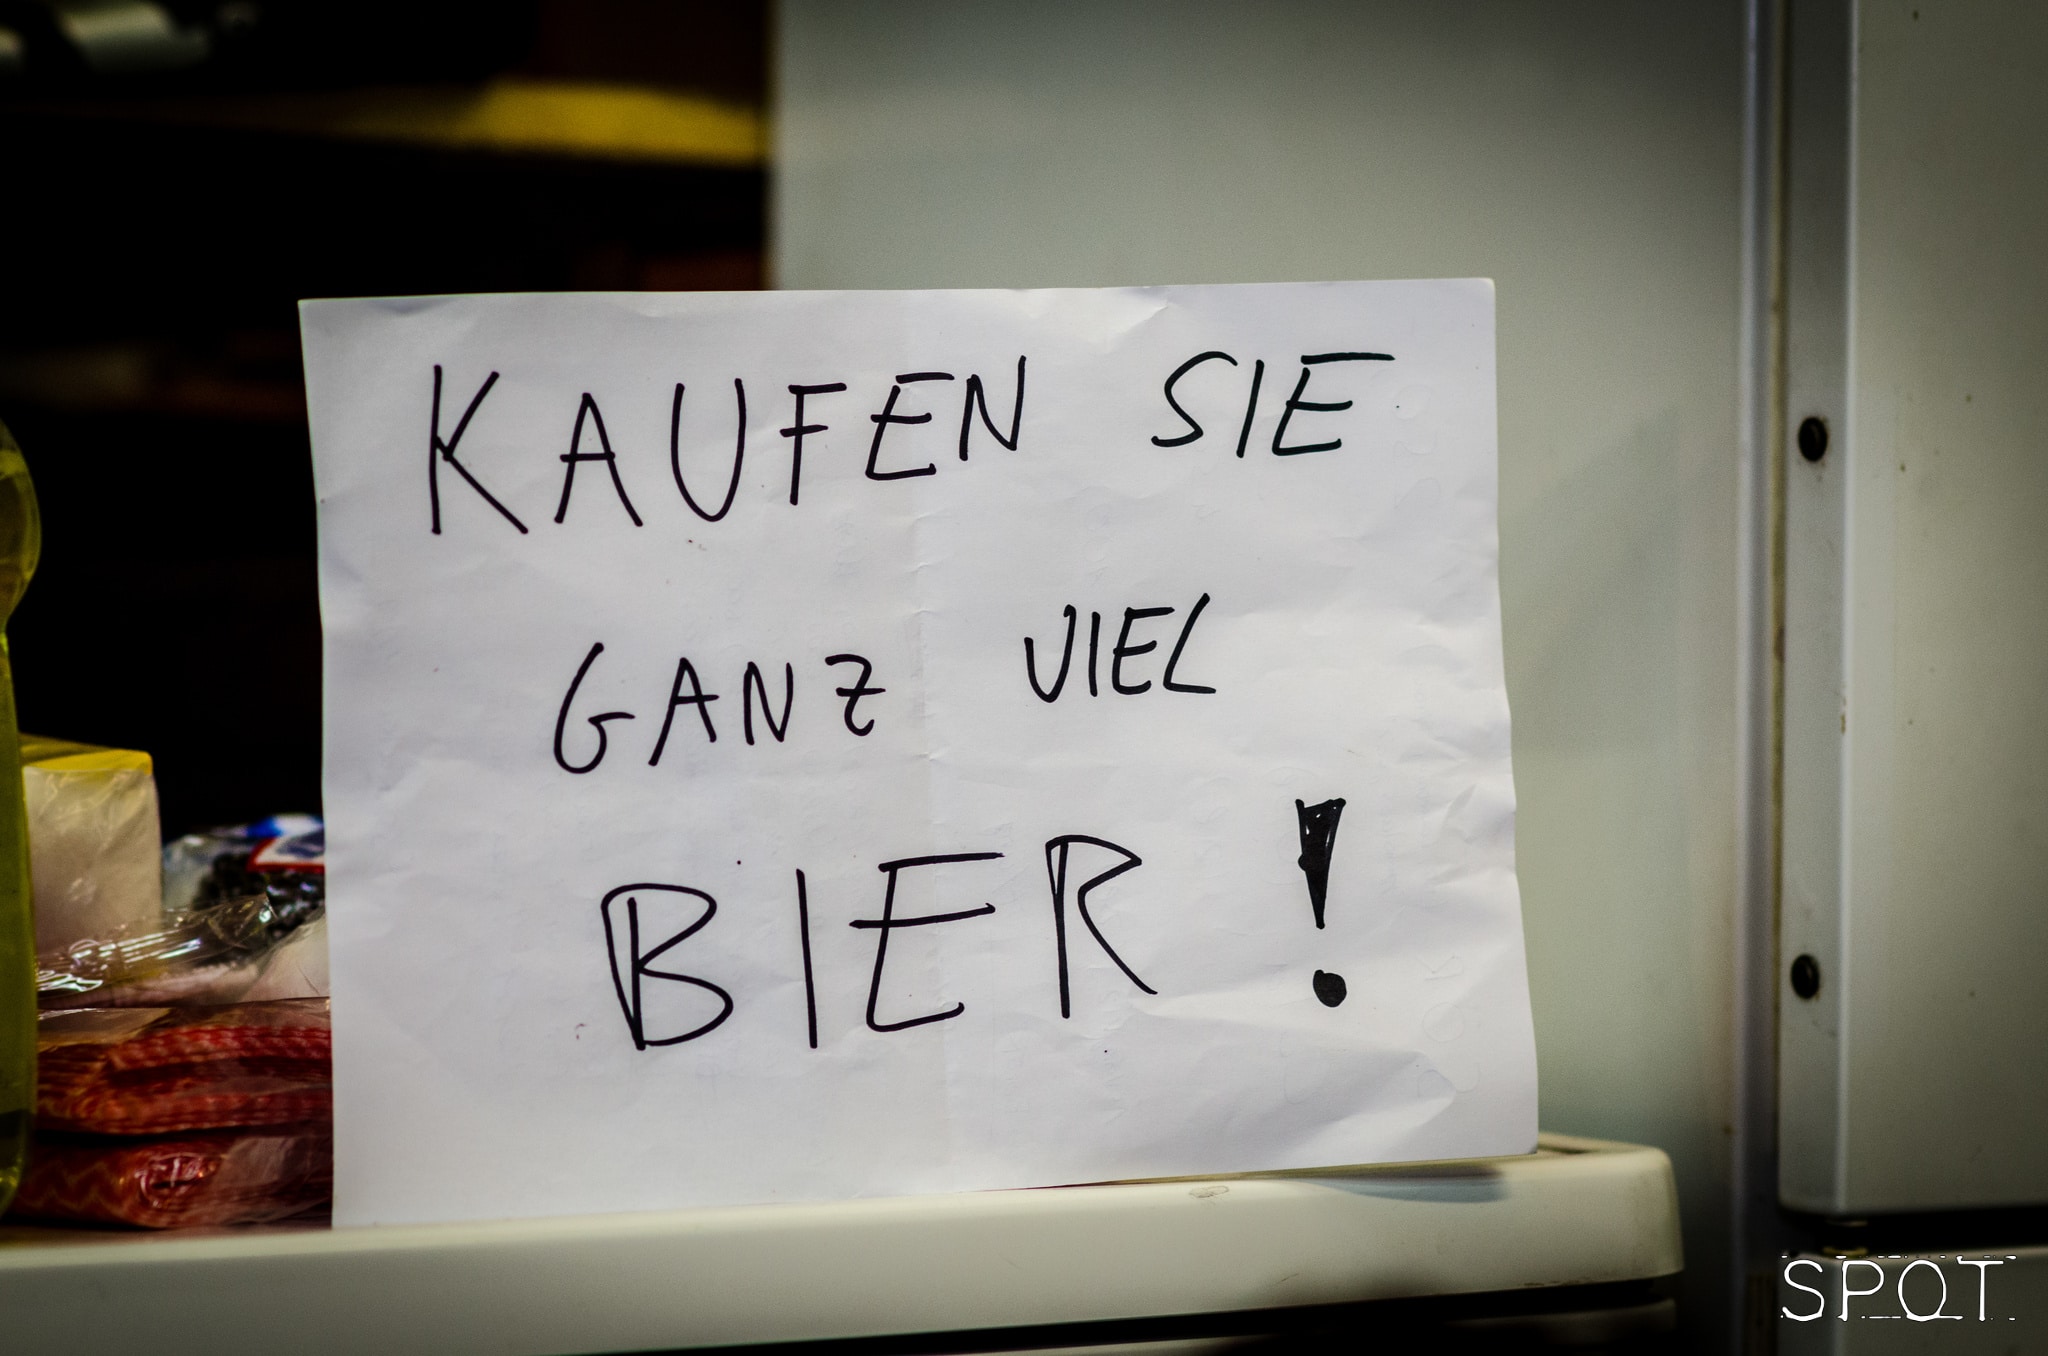 KAUFEN SIE
GANZ VIEL
BIER!
SPOT